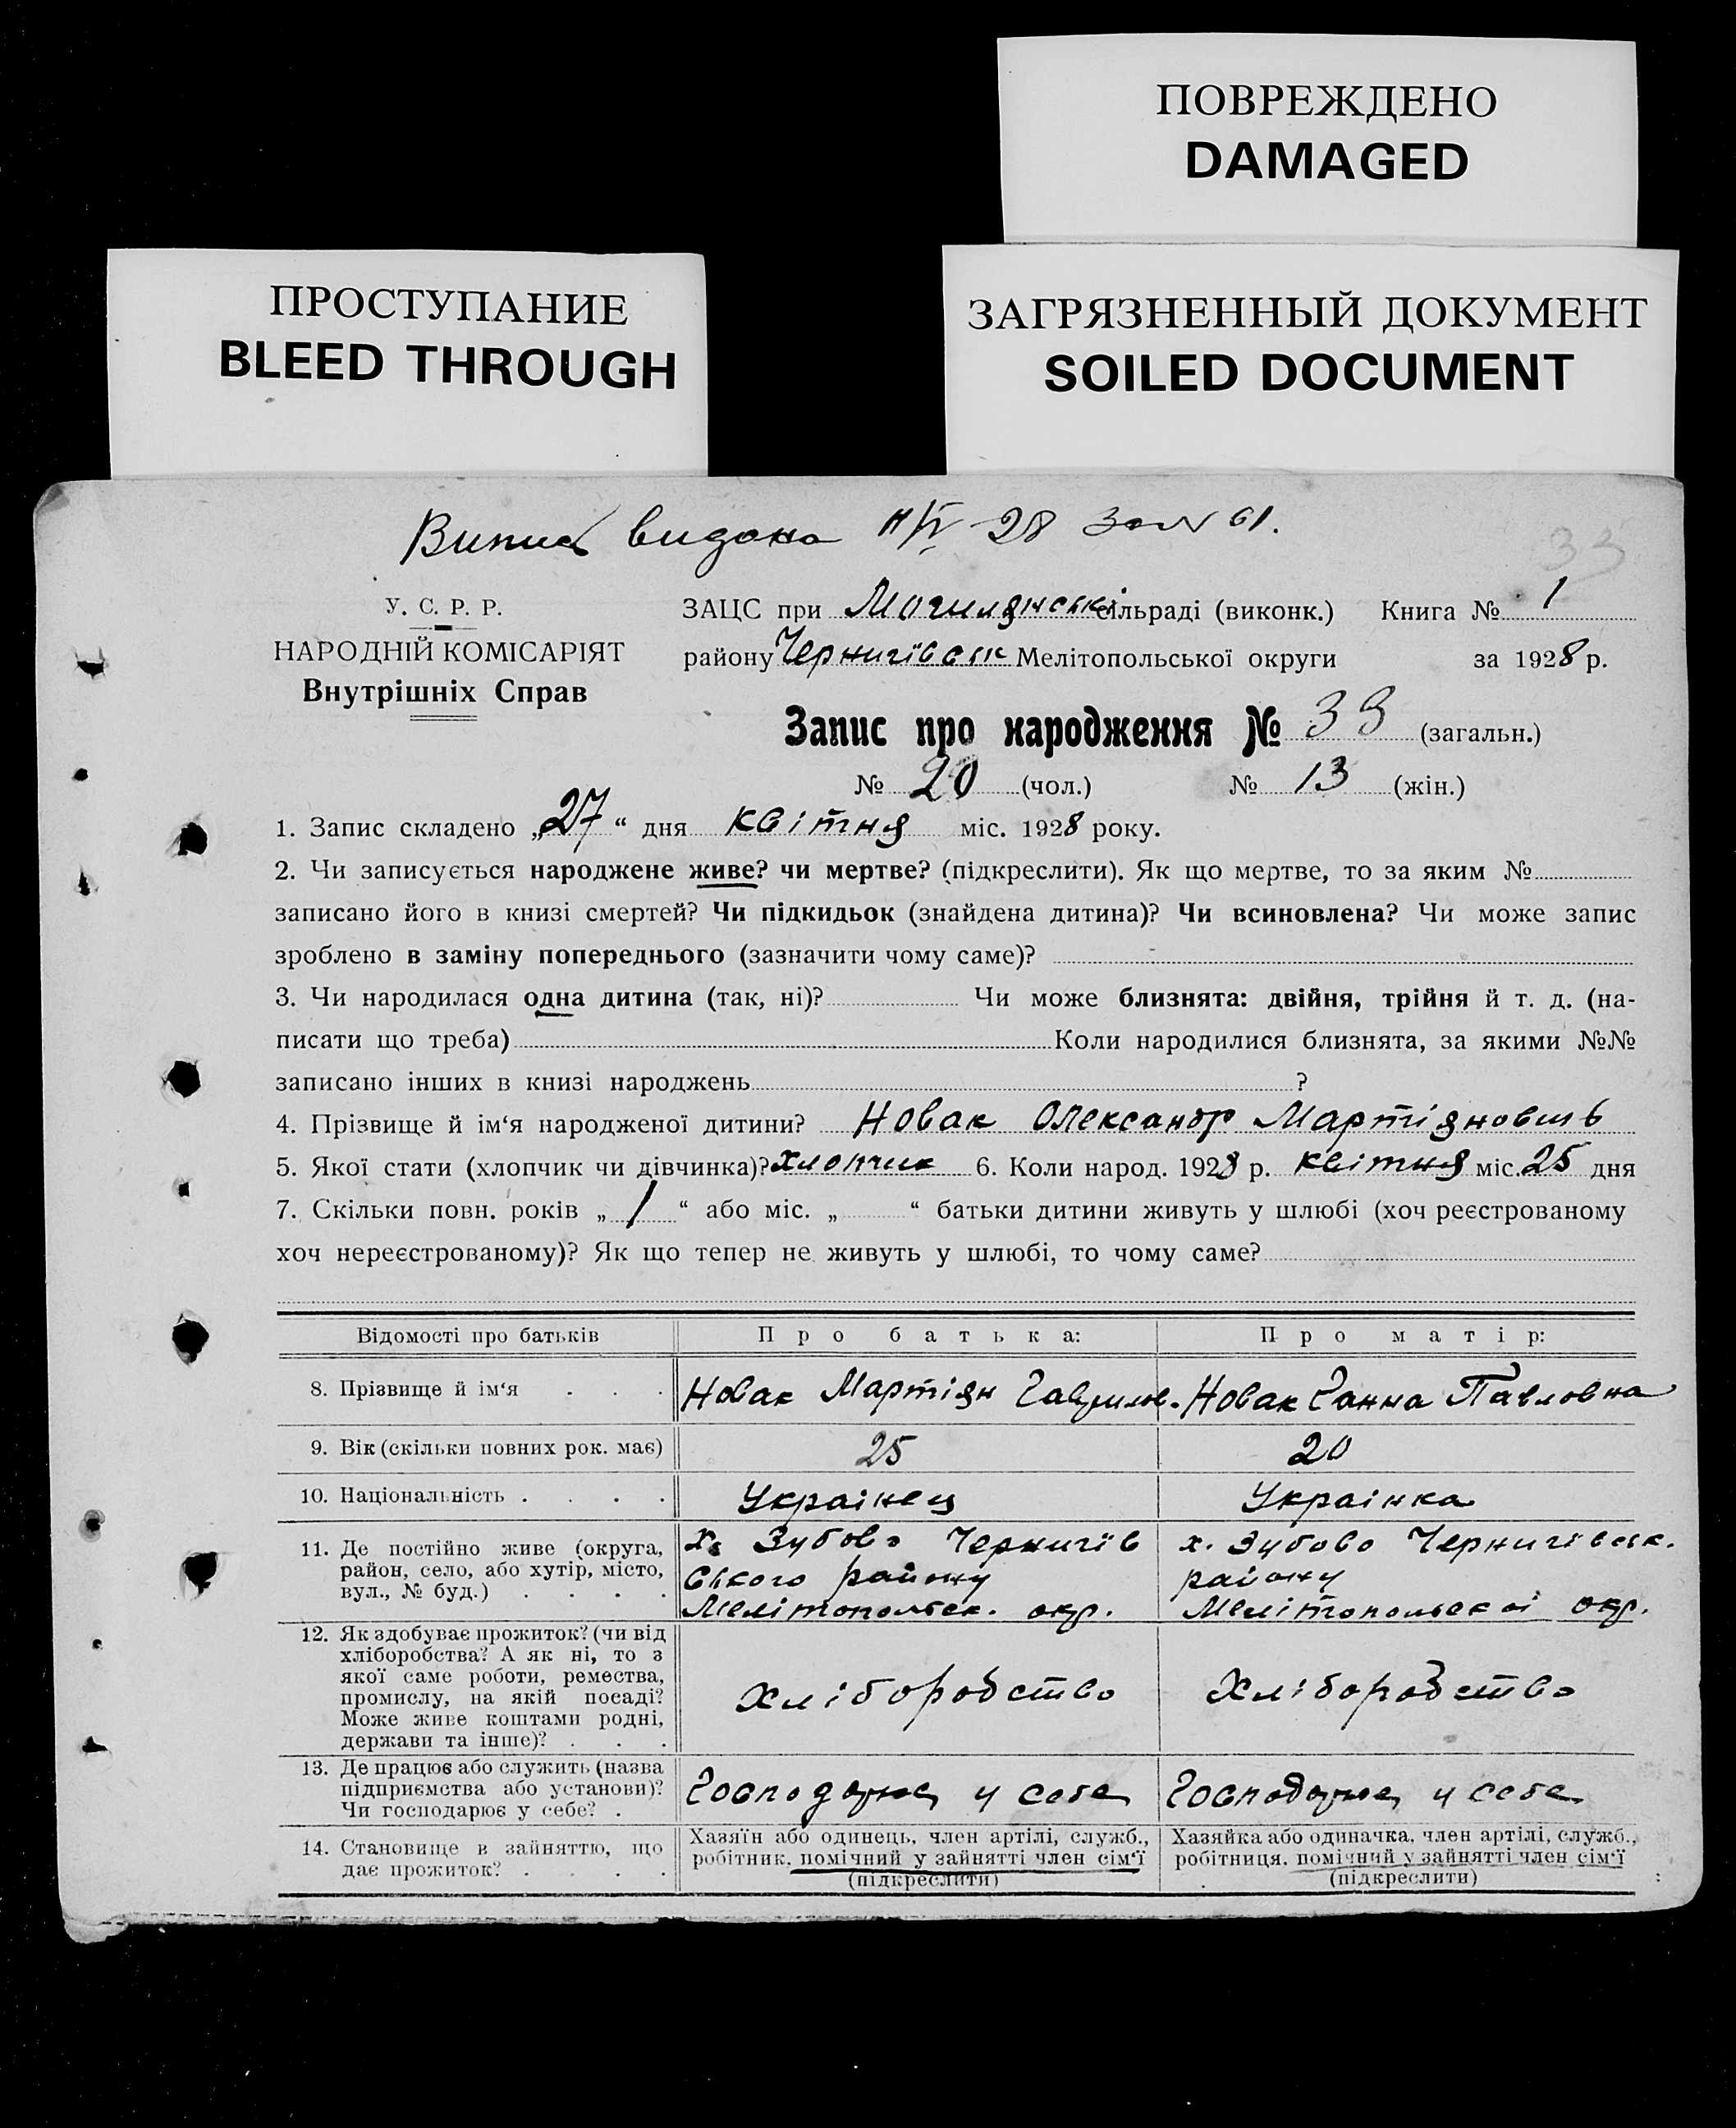 ПОВРЕЖДЕНО
DAMAGED
ПРОСТУПАНИЕ
BLEED THROUGH
ЗАГРЯЗНЕННЫЙ ДОКУМЕНТ
SOILED DOCUMENT
Випис видано 28 61.
33
У. С. Р. Р.
НАРОДНІЙ КОМІСАРІЯТ
Внутрішніх Справ
ЗАЦС при Могилянські сільраді (виконк.) Книга № 1
району Чернигівськ Мелітопольської округи за 1928 р.
Запис про народження № 33 (загальн.)
№ 20 (чол.) № 13 (жін.)
1. Запис складено „27“ дня квітня міс. 1928 року.
2. Чи записується народжене живе? чи мертве? (підкреслити). Як що мертве, то за яким №
записано його в книзі смертей? Чи підкидьок (знайдена дитина)? Чи всиновлена? Чи може запис
зроблено в заміну попереднього (зазначити чому саме)?
3. Чи народилася одна дитина (так, ні)? Чи може близнята: двійня, трійня й т. д. (на-
писати що треба) Коли народилися близнята, за якими №№
записано інших в книзі народжень ?
4. Прізвище й ім‘я народженої дитини? Новак Олександр Мартіянович
5. Якої стати (хлопчик чи дівчинка)? хлопчик 6. Коли народ. 1928 р. квітня міс. 25 дня
7. Скільки повн. років „ 1 “ або міс. „ “ батьки дитини живуть у шлюбі (хоч реєстрованому
хоч нереєстрованому)? Як що тепер не живуть у шлюбі, то чому саме?
Відомості про батьків
Про батька:
Про матір:
8. Прізвище й ім‘я . . .
Новак Мартіян Гаврилов.
Новак Ганна Павловна
9. Вік (скільки повних рок. має)
25
20
10. Національність . . . .
Украінец
Украінка
11. Де постійно живе (округа,
район, село, або хутір, місто,
вул., № буд.) . . . .
х. Зубово Чернигів
ського району
Мелітопольск. окр.
х. Зубово Чернигівськ.
району
Мелітопольскоі окр.
12. Як здобуває прожиток? (чи від
хліборобства? А як ні, то з
якої саме роботи, ремества,
промислу, на якій посаді?
Може живе коштами родні,
держави та інше)? . . .
Хлібородство
Хлібородство
13. Де працює або служить (назва
підприємства або установи)?
Чи господарює у себе? .
Господарює у себе
Господарює у себе
14. Становище в зайняттю, що
дає прожиток? . . . .
Хазяїн або одинець, член артілі, служб.,
робітник, помічний у зайнятті член сім‘ї
(підкреслити)
Хазяйка або одиначка, член артілі, служб.,
робітниця, помічний у зайнятті член сім‘ї
(підкреслити)